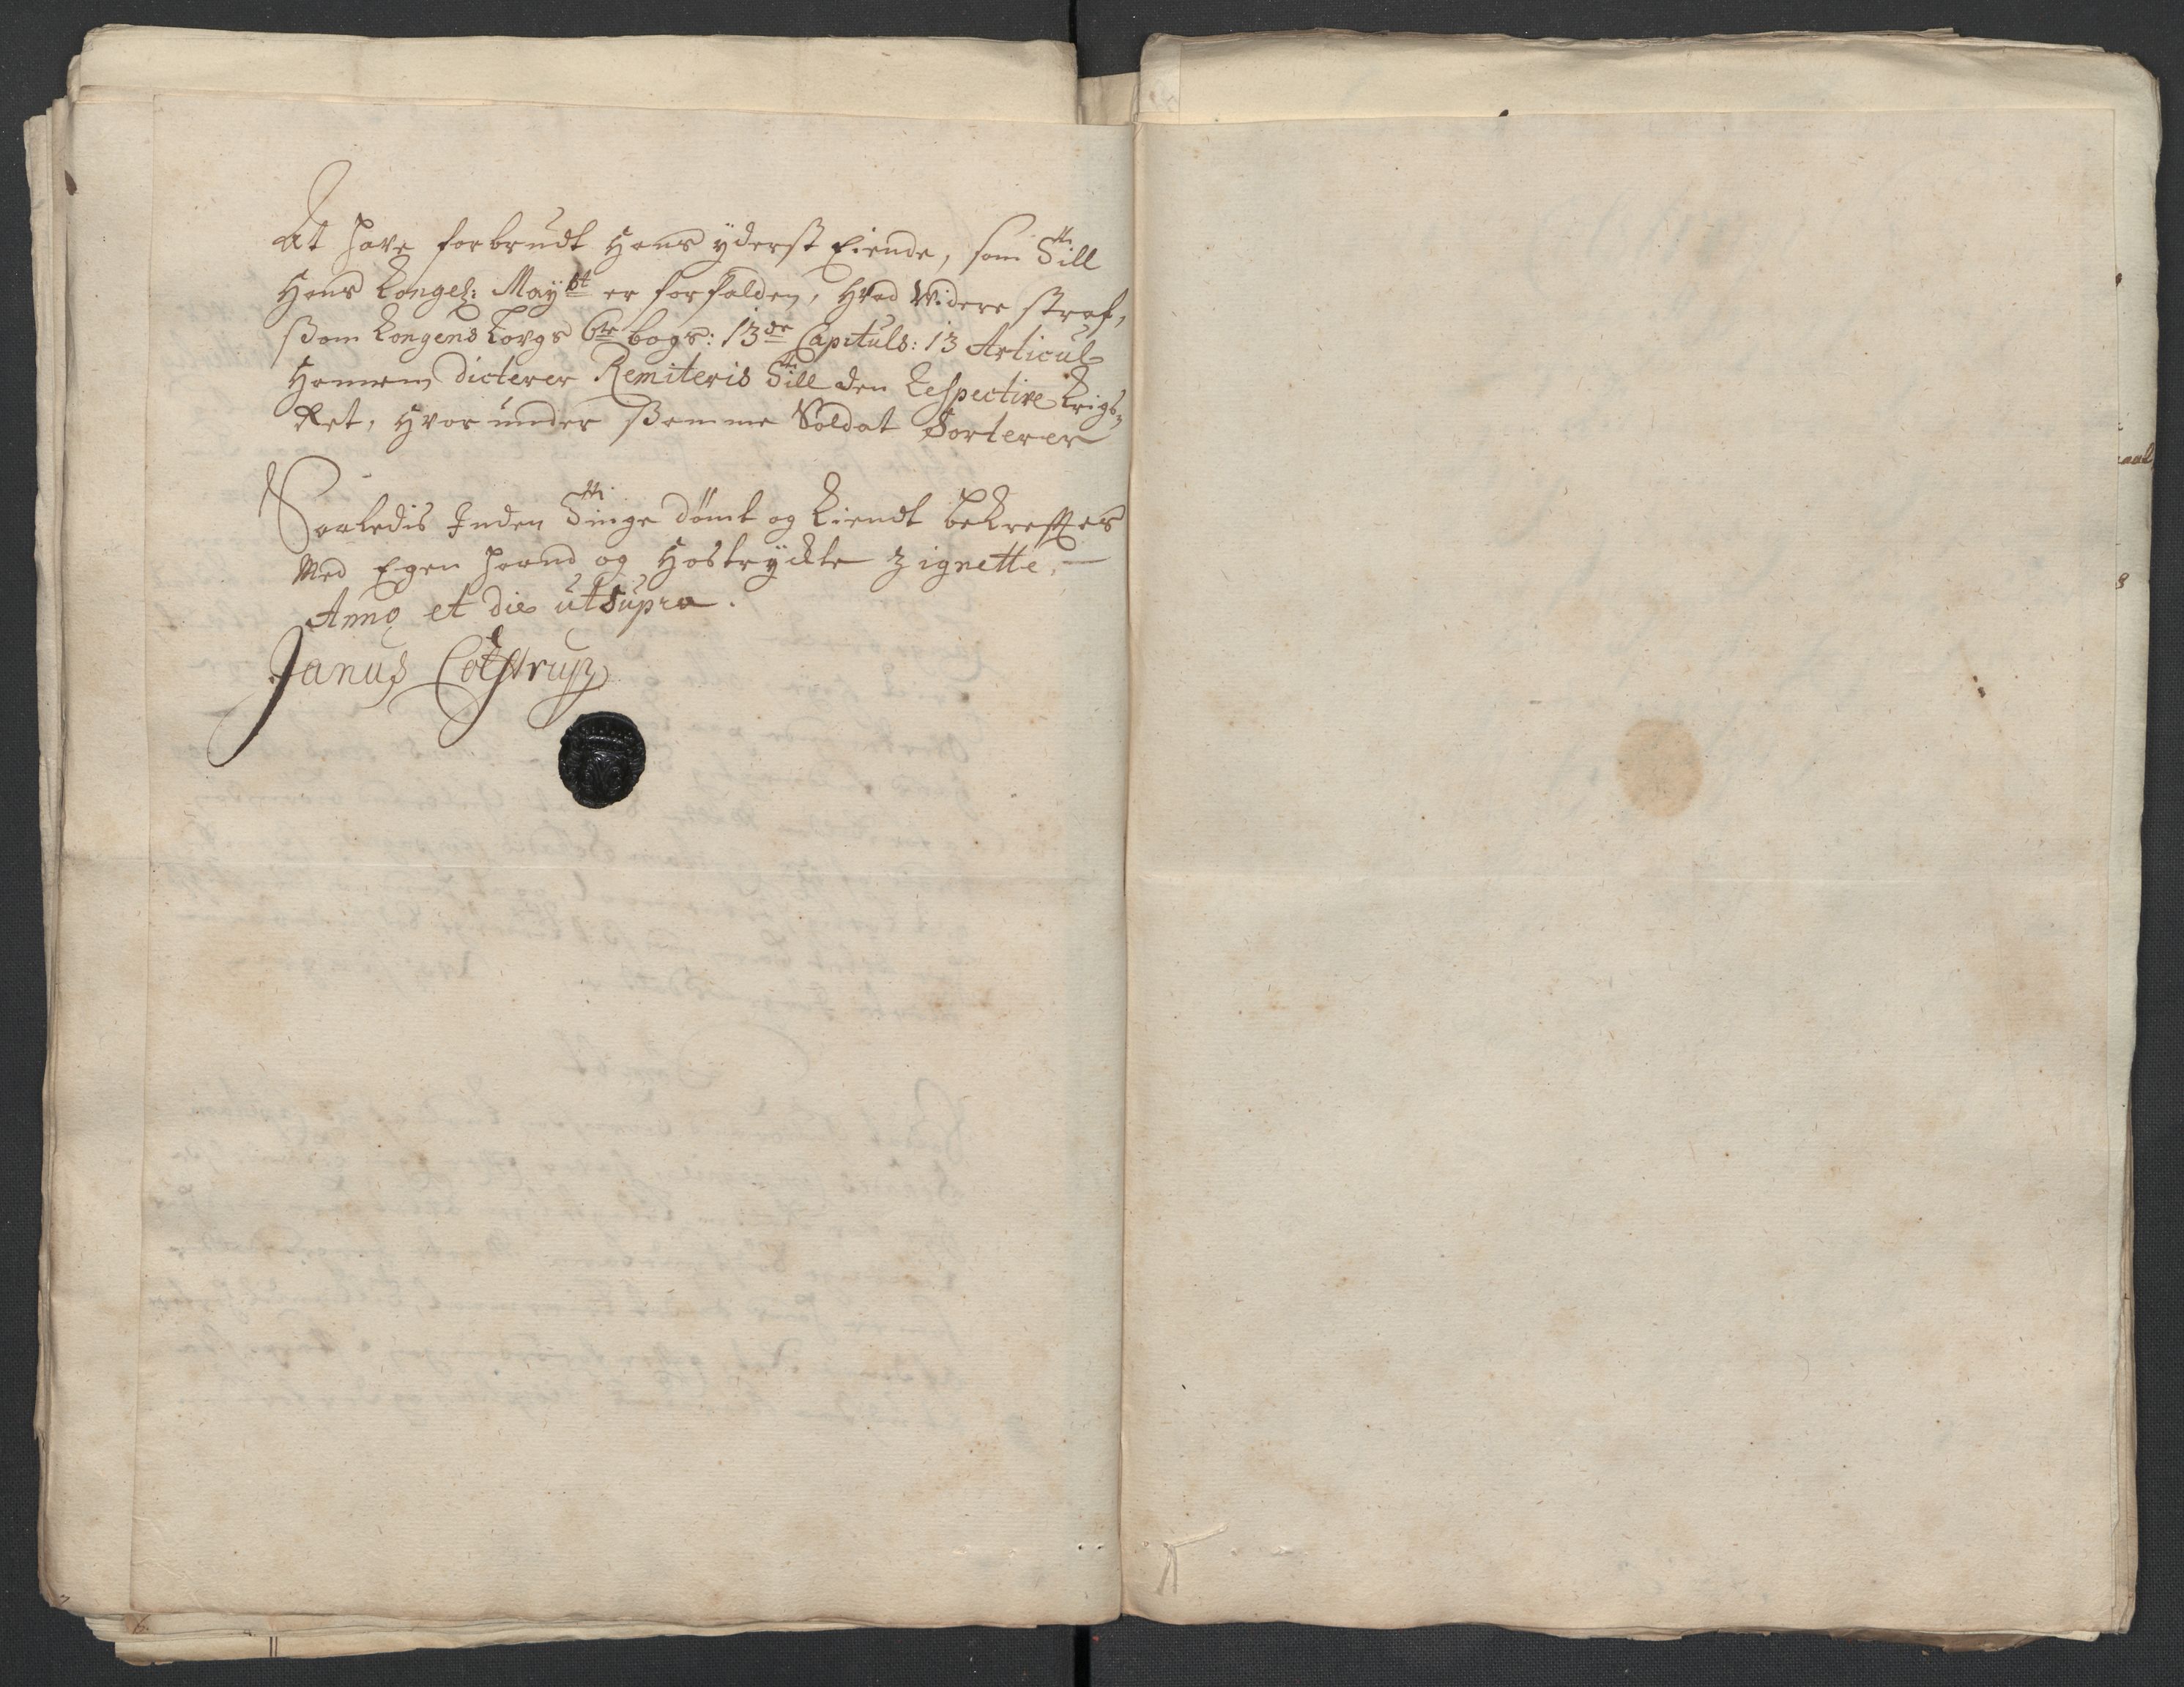 At have forbrudt Hans yderst Eiende, som Till
Hans Kongel: May.st er forfalden, Hvad Widere straf,
Som Kongens Lovgs 6te bogs: 13de Capituls: 13 Articul
Hannem dicterer Remiteris Till den Respective Krigs-
Ret, Hvor under Samme Soldat Sorterer
Saaledis Inden Tinge dømt og Kiendt bekreftes
Med Egen Haand og Hostryckte Zignette,
Anno et die utsupra.
Janus Colstrup